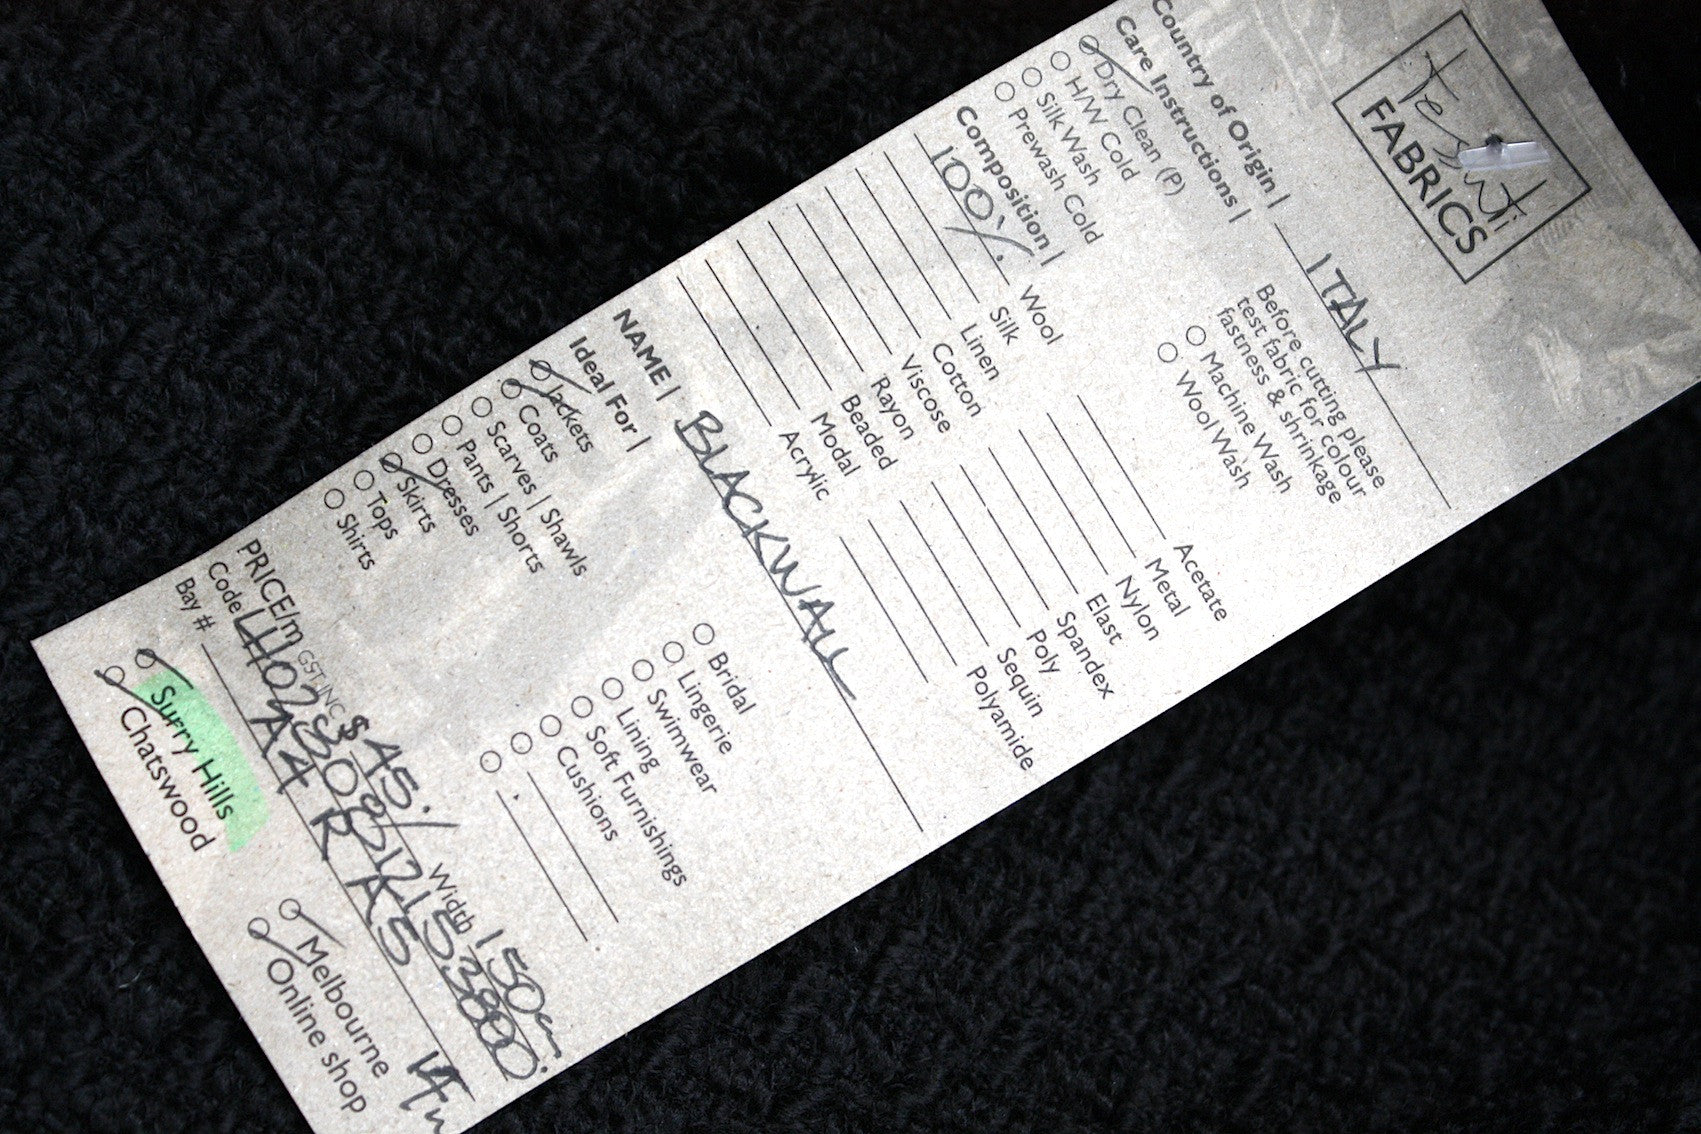 tessuti
FABRICS
Country of Origin | ITALY
Care Instructions |
Dry Clean (P)
H/W Cold
Silk Wash
Prewash Cold
Before cutting please
test fabric for colour
fastness & shrinkage
Machine Wash
Wool Wash
Composition |
100% Wool
Silk
Linen
Cotton
Viscose
Rayon
Beaded
Modal
Acrylic
Acetate
Metal
Nylon
Elast
Spandex
Poly
Sequin
Polyamide
NAME | BLACKWALL
Ideal For |
Jackets
Coats
Scarves | Shawls
Pants | Shorts
Dresses
Skirts
Tops
Shirts
Bridal
Lingerie
Swimwear
Lining
Soft Furnishings
Cushions
PRICE/m GST INC $45./ Width 150cm
Code
Bay # A4 R A5
Surry Hills
Chatswood
Melbourne
Online shop